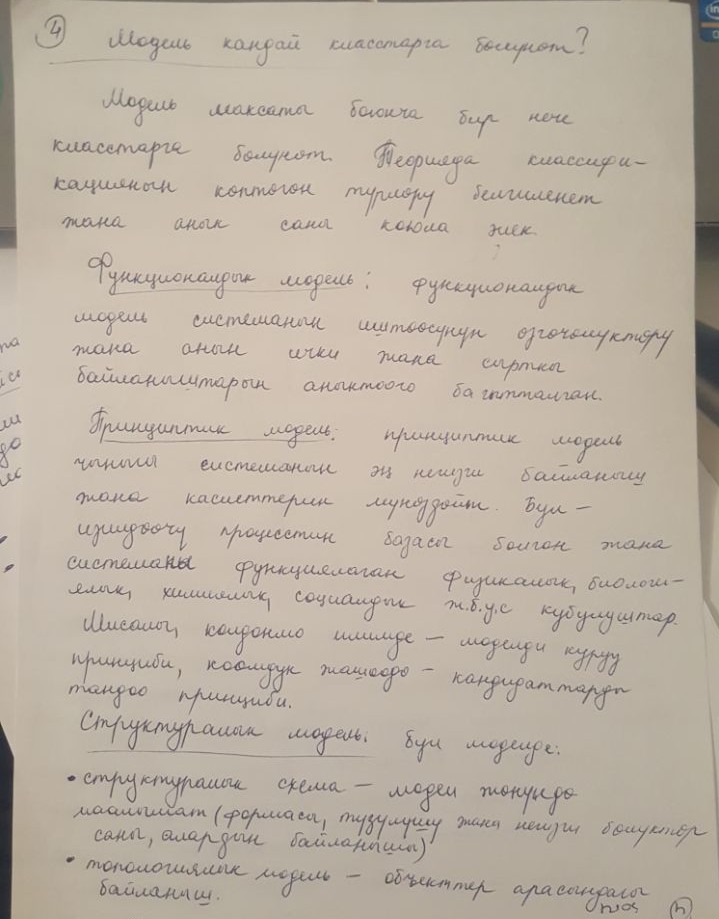 4 Модель кандай класстарга болунот?
Модель максаты боюнча бир нече
класстарга болунот. Теорияда классифи-
кациянын коптогон турлору белгиленет
жана анык саны коюла элек.
Функционалдык модель: функционалдык
модель системанын иштоосунун озгочолуктору
жана анын ички жана сырткы
байланыштарын аныктоого багытталган.
Принциптик модель: принциптик модель
чыныгы системанын эң негизги байланыш
жана касиеттерин мунозdoйт. Бул –
изилдоочу процесстин базасы болгон жана
системаны функциялаган физикалык, биологи-
ялык, химиялык, социалдык ж.б.у.с кубулуштар.
Мисалы, колдонмо илимде – моделди куруу
принциби, коомдук жашоодо – кандидаттарды
тандоо принциби.
Структуралык модель: бул моделде:
• структуралык схема – модел жонундо
маалымат (формасы, тузулушу жана негизги болуктор
саны, алардын байланышы)
• топологиялык модель – объекттер арасындагы
байланыш.